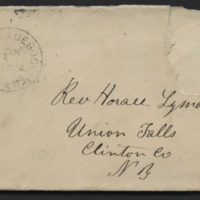 Rev Horace Lyma
Union Falls
Clinton Co
N B